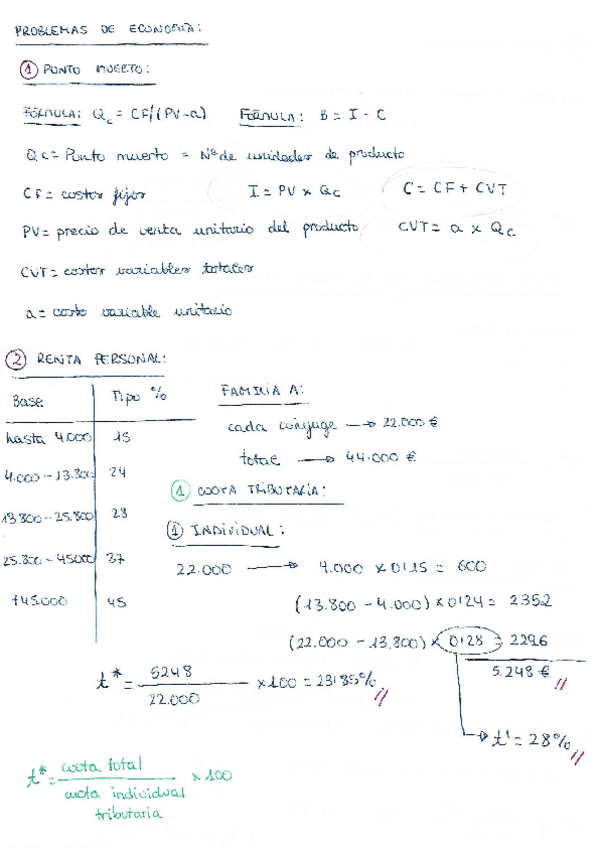 PROBLEMAS DE ECONOMÍA:
① PUNTO MUERTO:
FÓRMULA: Qc = CF/(PV-a) FÓRMULA: B = I - C
Qc = Punto muerto = Nº de unidades de producto
CF = costes fijos I = PV x Qc C = CF + CVT
PV = precio de venta unitario del producto CVT = a x Qc
CVT = costes variables totales
a = coste variable unitario
② RENTA PERSONAL:
Base Tipo %
hasta 4.000 15
4.000 - 13.800 24
13.800 - 25.800 28
25.800 - 45000 37
+45.000 45
FAMILIA A:
cada cónyuge → 22.000 €
total → 44.000 €
① CUOTA TRIBUTARIA:
① INDIVIDUAL:
22.000 → 4.000 x 0'15 = 600
(13.800 - 4.000) x 0'24 = 2352
(22.000 - 13.800) x 0'28 = 2296
5.248 €
t* = 5248 / 22.000 x 100 = 23'85%
t' = 28%
t* = cuota total / cuota individual tributaria x 100